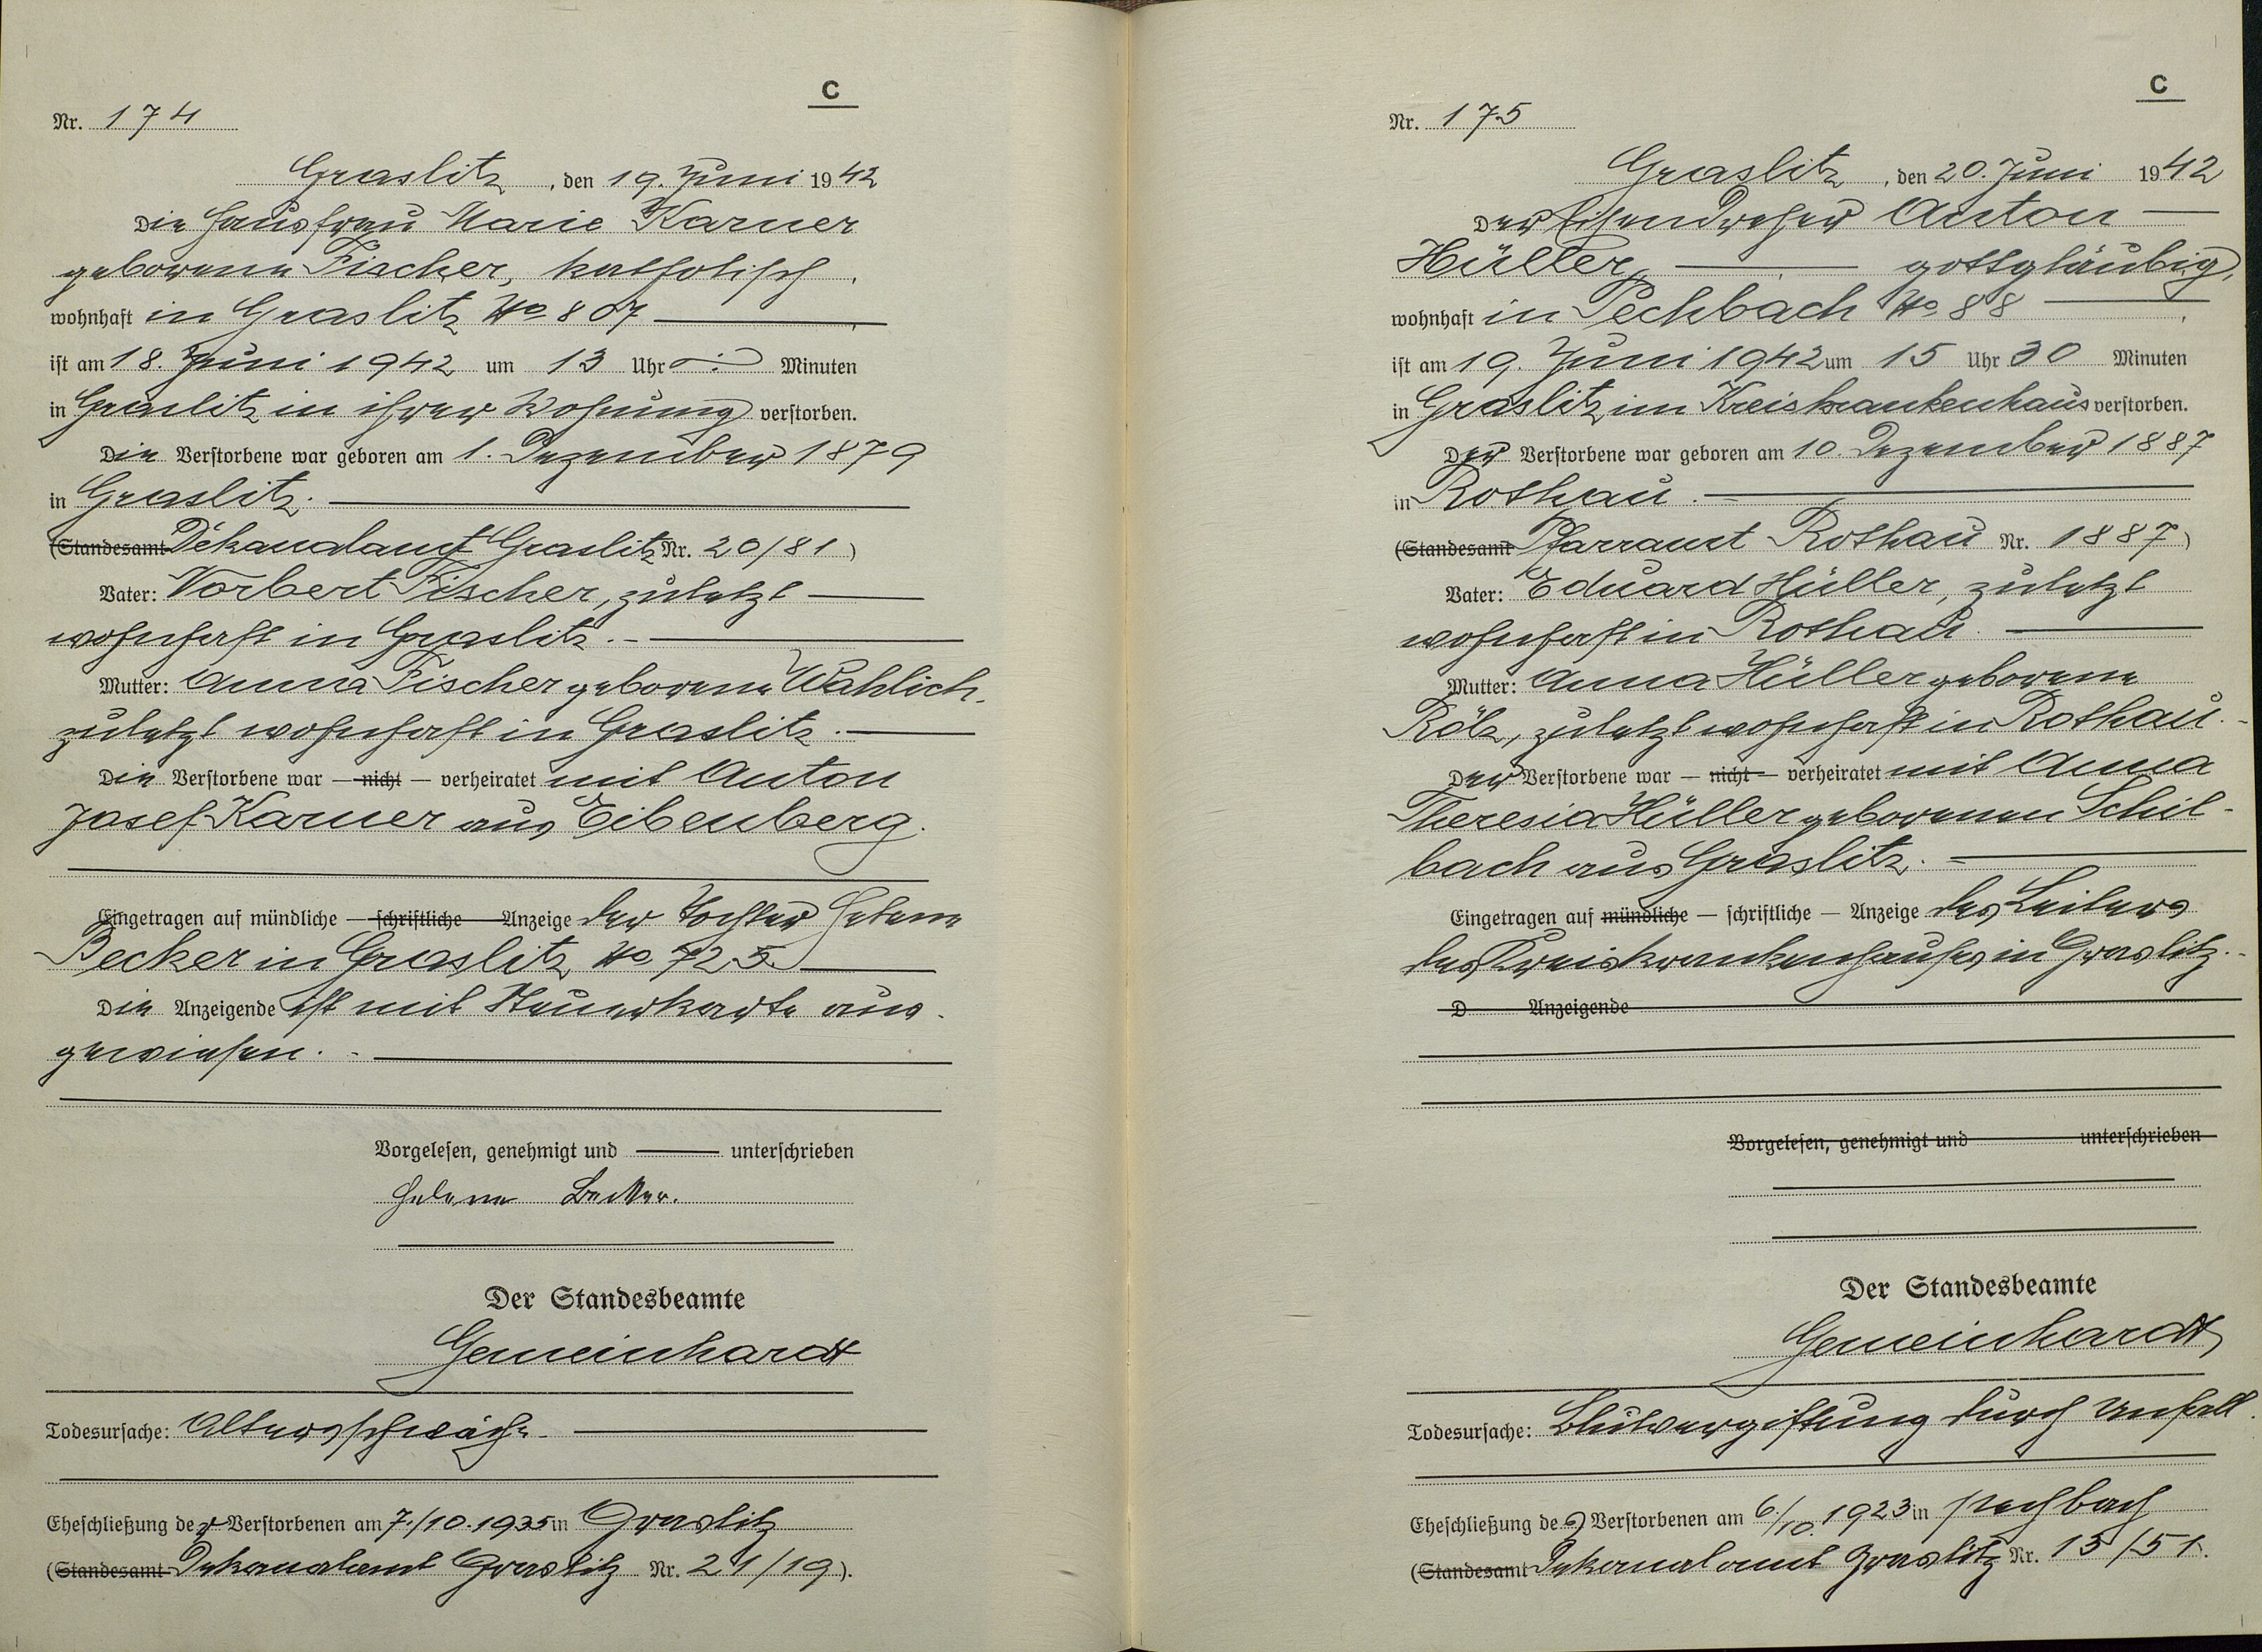 C
Nr. 174
Graslitz, den 19. Juni 1942
Die Hausfrau Marie Karner
geborene Fischer, katholisch,
wohnhaft in Graslitz No 807
ist am 18. Juni 1942 um 13 Uhr Minuten
in Graslitz in ihrer Wohnung verstorben.
Die Verstorbene war geboren am 1. Dezember 1879
in Graslitz.
(Standesamt Dekanalamt Graslitz Nr. 20/81)
Vater: Norbert Fischer, zuletzt
wohnhaft in Graslitz.
Mutter: Anna Fischer geborene Wahlich,
zuletzt wohnhaft in Graslitz.
Die Verstorbene war — nicht — verheiratet mit Anton
Josef Karner aus Eibenberg.
Eingetragen auf mündliche — schriftliche — Anzeige der Tochter Helene
Becker in Graslitz No 725
Die Anzeigende ist mit Steuerkarte aus-
gewiesen.
Vorgelesen, genehmigt und unterschrieben
Helene Becker.
Der Standesbeamte
Gemeinhardt
Todesursache: Altersschwäche
Eheschließung der Verstorbenen am 7./10.1935 in Graslitz
(Standesamt Dekanalamt Graslitz Nr. 21/19).
C
Nr. 175
Graslitz, den 20. Juni 1942
Der Eisendreher Anton
Hüller, gottgläubig,
wohnhaft in Pechbach No 88
ist am 19. Juni 1942 um 15 Uhr 30 Minuten
in Graslitz im Kreiskrankenhaus verstorben.
Der Verstorbene war geboren am 10. Dezember 1887
in Rothau.
(Standesamt Pfarramt Rothau Nr. 1887)
Vater: Eduard Hüller, zuletzt
wohnhaft in Rothau.
Mutter: Anna Hüller geborene
Rölz, zuletzt wohnhaft in Rothau.
Der Verstorbene war — nicht — verheiratet mit Anna
Theresia Hüller geborenen Schil-
bach aus Graslitz.
Eingetragen auf mündliche — schriftliche — Anzeige des Leiters
des Kreiskrankenhauses in Graslitz.
D Anzeigende
Vorgelesen, genehmigt und unterschrieben
Der Standesbeamte
Gemeinhardt
Todesursache: Blutvergiftung durch Unfall.
Eheschließung des Verstorbenen am 6./10.1923 in Pechbach
(Standesamt Dekanalamt Graslitz Nr. 15/51.